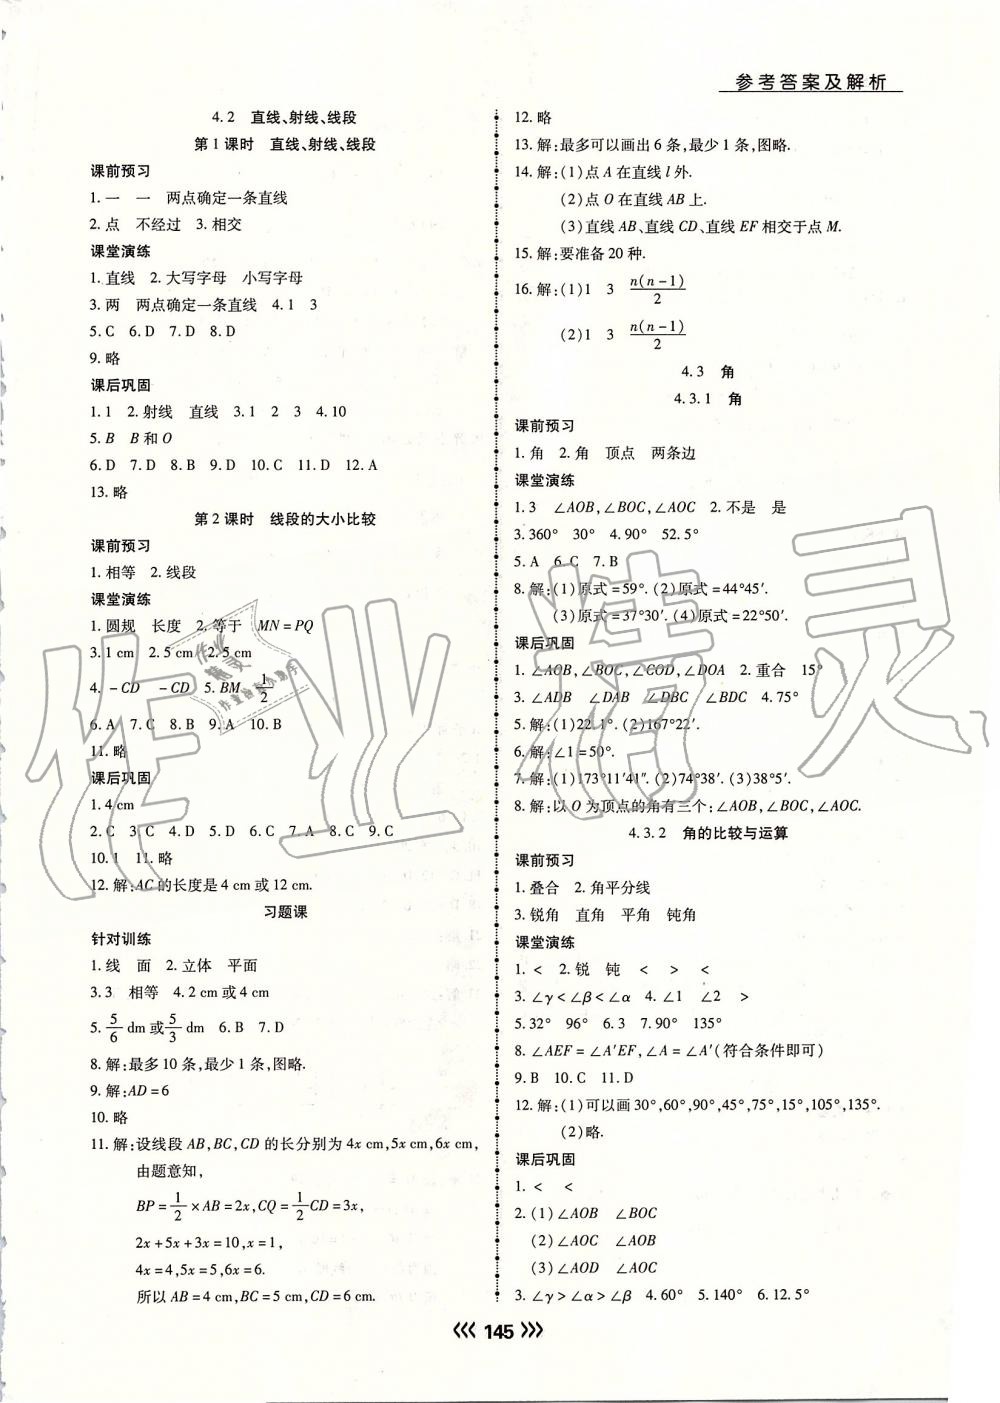 参考答案及解析
4.2　直线、射线、线段
第1课时　直线、射线、线段
课前预习
1.一　一　两点确定一条直线
2.点　不经过　3.相交
课堂演练
1.直线　2.大写字母　小写字母
3.两　两点确定一条直线　4.1　3
5.C　6.D　7.D　8.D
9.略
课后巩固
1.1　2.射线　直线　3.1　2　3　4.10
5.B　B和O
6.D　7.D　8.B　9.D　10.C　11.D　12.A
13.略
第2课时　线段的大小比较
课前预习
1.相等　2.线段
课堂演练
1.圆规　长度　2.等于　MN=PQ
3.1 cm　2.5 cm　2.5 cm
4.-CD　-CD　5.BM　1/2
6.A　7.C　8.B　9.A　10.B
11.略
课后巩固
1.4 cm
2.C　3.C　4.D　5.D　6.C　7.A　8.C　9.C
10.1　11.略
12.解:AC的长度是4 cm或12 cm.
习题课
针对训练
1.线　面　2.立体　平面
3.3　相等　4.2 cm或4 cm
5.5/6 dm或5/3 dm　6.B　7.D
8.解:最多10条,最少1条,图略.
9.解:AD=6
10.略
11.解:设线段AB,BC,CD的长分别为4x cm,5x cm,6x cm,
由题意知,
BP=1/2×AB=2x,CQ=1/2CD=3x,
2x+5x+3x=10,x=1,
4x=4,5x=5,6x=6.
所以AB=4 cm,BC=5 cm,CD=6 cm.
12.略
13.解:最多可以画出6条,最少1条,图略.
14.解:(1)点A在直线l外.
(2)点O在直线AB上.
(3)直线AB、直线CD、直线EF相交于点M.
15.解:要准备20种.
16.解:(1)1　3　n(n-1)/2
(2)1　3　n(n-1)/2
4.3　角
4.3.1　角
课前预习
1.角　2.角　顶点　两条边
课堂演练
1.3　∠AOB,∠BOC,∠AOC　2.不是　是
3.360°　30°　4.90°　52.5°
5.A　6.C　7.B
8.解:(1)原式=59°.(2)原式=44°45′.
(3)原式=37°30′.(4)原式=22°50′.
课后巩固
1.∠AOB,∠BOC,∠COD,∠DOA　2.重合　15°
3.∠ADB　∠DAB　∠DBC　∠BDC　4.75°
5.解:(1)22.1°.(2)167°22′.
6.解:∠1=50°.
7.解:(1)173°11′41″.(2)74°38′.(3)38°5′.
8.解:以O为顶点的角有三个:∠AOB,∠BOC,∠AOC.
4.3.2　角的比较与运算
课前预习
1.叠合　2.角平分线
3.锐角　直角　平角　钝角
课堂演练
1.<　2.锐　钝　<　>　<
3.∠γ<∠β<∠α　4.∠1　∠2　>
5.32°　96°　6.3　7.90°　135°
8.∠AEF=∠A′EF,∠A=∠A′(符合条件即可)
9.B　10.C　11.D
12.解:(1)可以画30°,60°,90°,45°,75°,15°,105°,135°.
(2)略.
课后巩固
1.<　<
2.(1)∠AOB　∠BOC
(2)∠AOC　∠AOB
(3)∠AOD　∠AOC
3.∠γ>∠α>∠β　4.60°　5.140°　6.12.5°
《《《 145 》》》
作业精灵